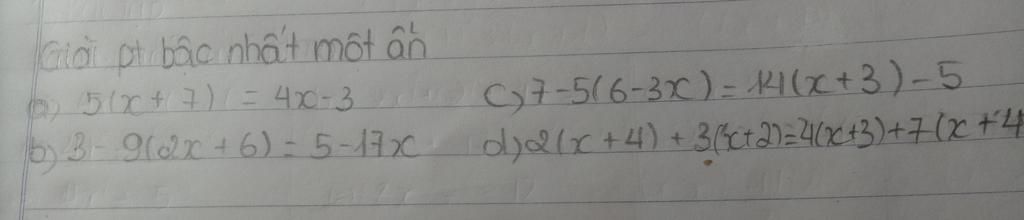 Giải pt bậc nhất một ẩn
a) 5(x + 7) = 4x - 3
c) 7 - 5(6 - 3x) = 14(x + 3) - 5
b) 3 - 9(2x + 6) = 5 - 17x
d) 2(x + 4) + 3(x + 2) = 4(x + 3) + 7(x + 4